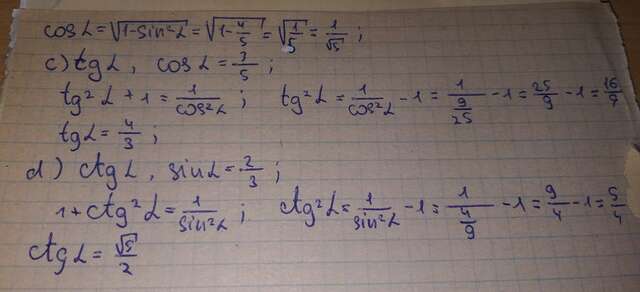 cos α = √(1-sin²α) = √(1-4/5) = √(1/5) = 1/√5 ;
c) tg α , cos α = 3/5 ;
tg² α + 1 = 1/cos²α ; tg² α = 1/cos²α - 1 = 1/(9/25) - 1 = 25/9 - 1 = 16/9
tg α = 4/3 ;
d) ctg α , sin α = 2/3 ;
1 + ctg² α = 1/sin²α ; ctg² α = 1/sin²α - 1 = 1/(4/9) - 1 = 9/4 - 1 = 5/4
ctg α = √5/2